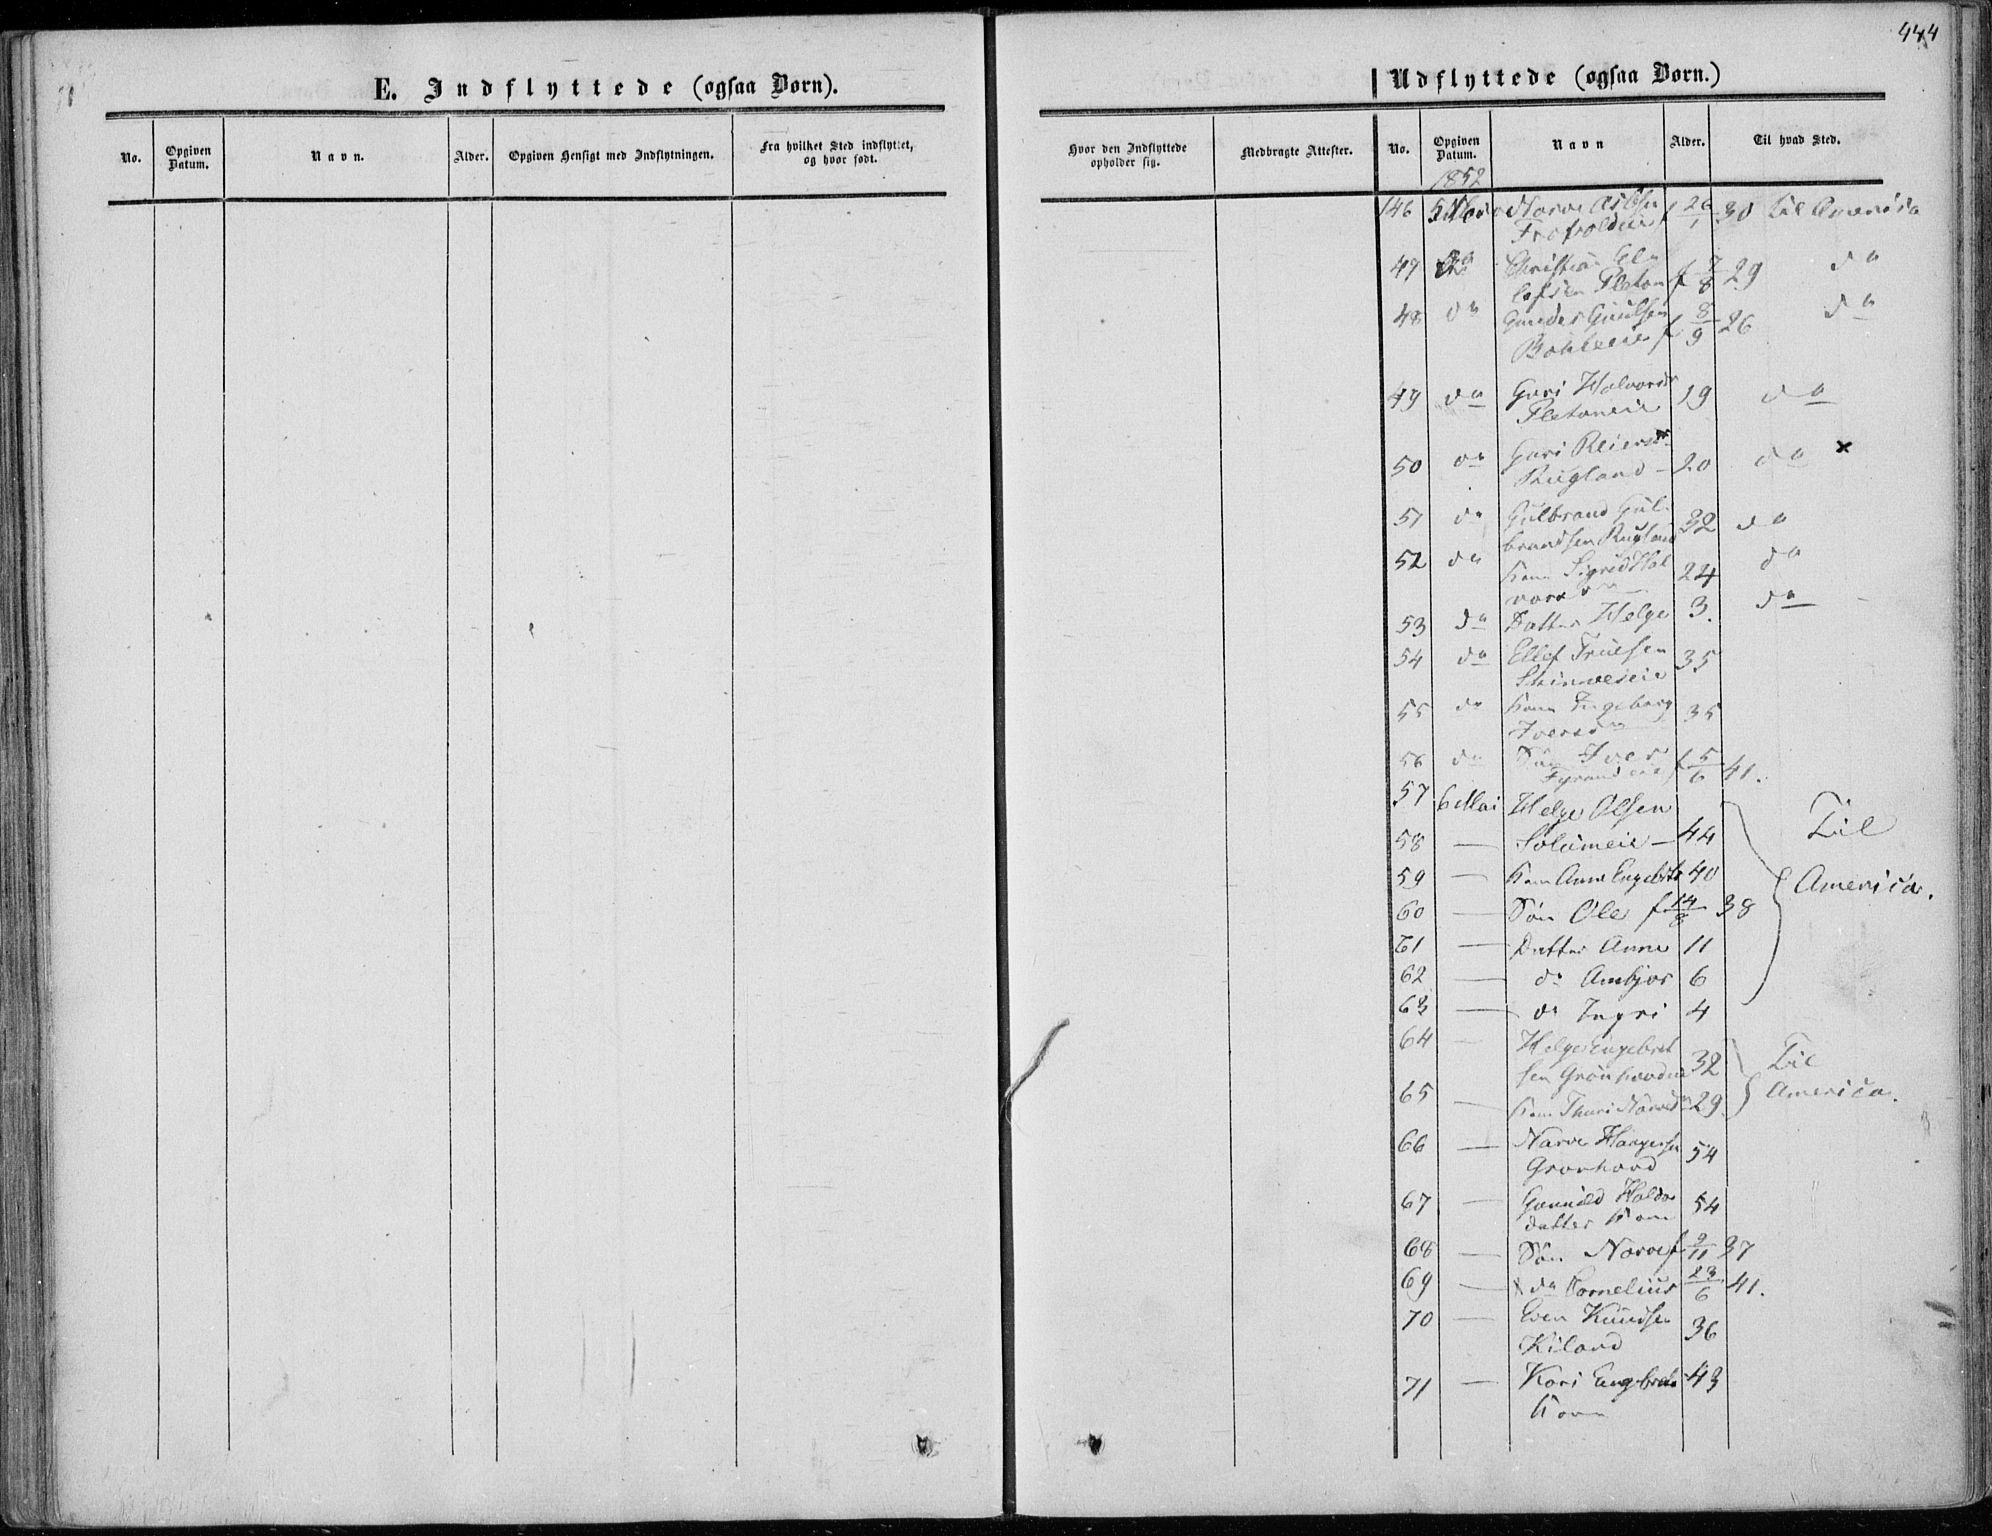 444
E. Indflyttede (ogsaa Børn).
No. Opgiven Datum. Navn. Alder. Opgiven Hensigt med Indflytningen. Fra hvilket Sted indflyttet, og hvor født.
Udflyttede (ogsaa Børn.)
Hvor den Indflyttede opholder sig. Medbragte Attester. No. Opgiven Datum. Navn Alder. Til hvad Sted.
1852
146 Narve f 26/1 30 Til America
47 do Christian
Pleton f 7/8 29 do
48 do Gunder Guulsen
f 8/9 26 do
49 do Guri Halvorsdr
Pletaneie 19 do
50 do Guri Reiersdr
Rugland - 20 do x
51 do Gulbrand Gul-
brandsen Rugland 32 do
52 do Kone Sigrid Hal
vorsdr 24 do
53 do Datter Helge 3. do
54 do Ellef Truelsen
35
55 do Kone Ingeborg
Iversdr 35
56 do Søn Iver
f 5/6 41.
57 6 Mai Helge Olsen
58 — Solumeie — 44 Til
59 — Kone Anne Engebrts 40 America.
60 — Søn Ole f 14/8 38
61 — Datter Anne 11
62 — do Ambjør 6
63 — do Ingri 4
64 — Helge Engebret
sen Grønhovd 32 Til
65 — Kone Thuri Narvesd 29 America.
66 — Narve
Grønhovd 54
67 — Gunnild Haldor
datter Kone 54
68 — Søn Narve f 9/11 37
69 — do Cornelius 23/6 41.
70 — Even Knudsen
Kiland 36
71 — Kari Engebrets 43
Kone